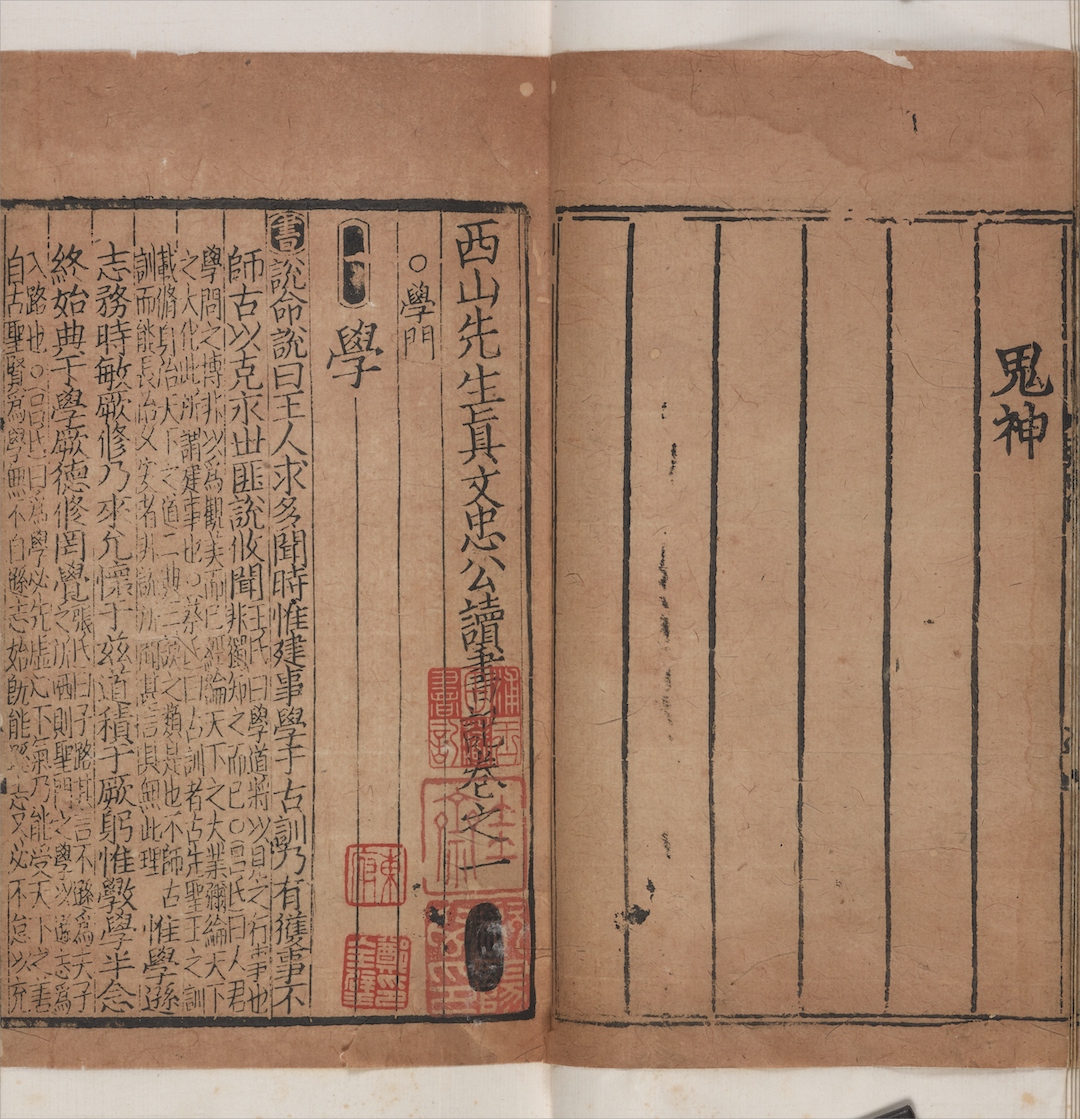 鬼神
西山先生真文忠公讀書記卷之一
○學門
學
書說命說曰王人求多聞時惟建事學于古訓乃有獲事不
師古以克永世匪說攸聞王氏曰學道將以見之行事也
非獨知之而已○
學問之博非以為觀美而已經論天下之大業彌綸天下
之大化此所謂建事也○蔡氏曰古訓者古先聖王之訓
載脩身治天下之道二典三謨之類是也不師古
訓而能長治乂安者非說所聞甚言其無此理
惟學遜
志務時敏厥修乃來允懷于兹道積于厥躬惟斆學半念
終始典于學厥德修罔覺張氏曰子路其言不遜為夫子
之所哂則聖門之學以遜志為
入路也○呂氏曰為學必先虛心下氣乃能受天下之善
自古聖賢為學無不自遜志始既能遜志又必不怠以充